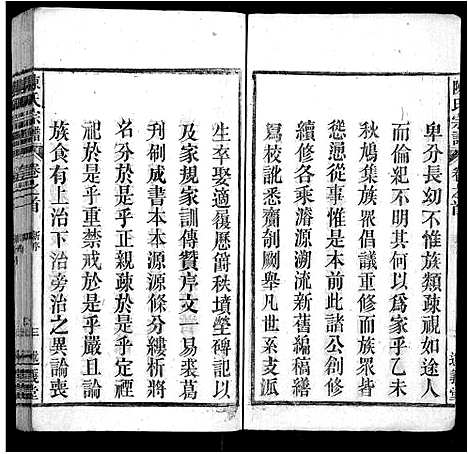 陳氏宗譜
卷之首
卑分長幼不惟族類疎視如途人
而倫犯不明何以為家乎乙未
秋鳩集族眾倡議重修而族眾皆
慫慂從事惟恐不前此諸公創修
續修各乘濬源溯流新舊編續繕
為校悉齋剞劂舉凡世系支派
生卒娶適履歷爵秩墳塋碑記以
及家規家訓傳贊序文一易裘葛
刊刷成書本本源源條分縷析昭
名分於是乎正親疎於是乎定禋
祀於是乎重禁戒於是乎嚴且論
族食有上治下治旁治之異論喪
陳氏宗譜
卷之首
三
義堂